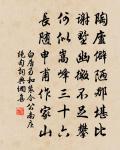 陶廬僻陋那堪比
謝墅幽微不足攀
何似嵩峰三十六
長隨申甫作家山
白居易和裴令公南莊
絕句